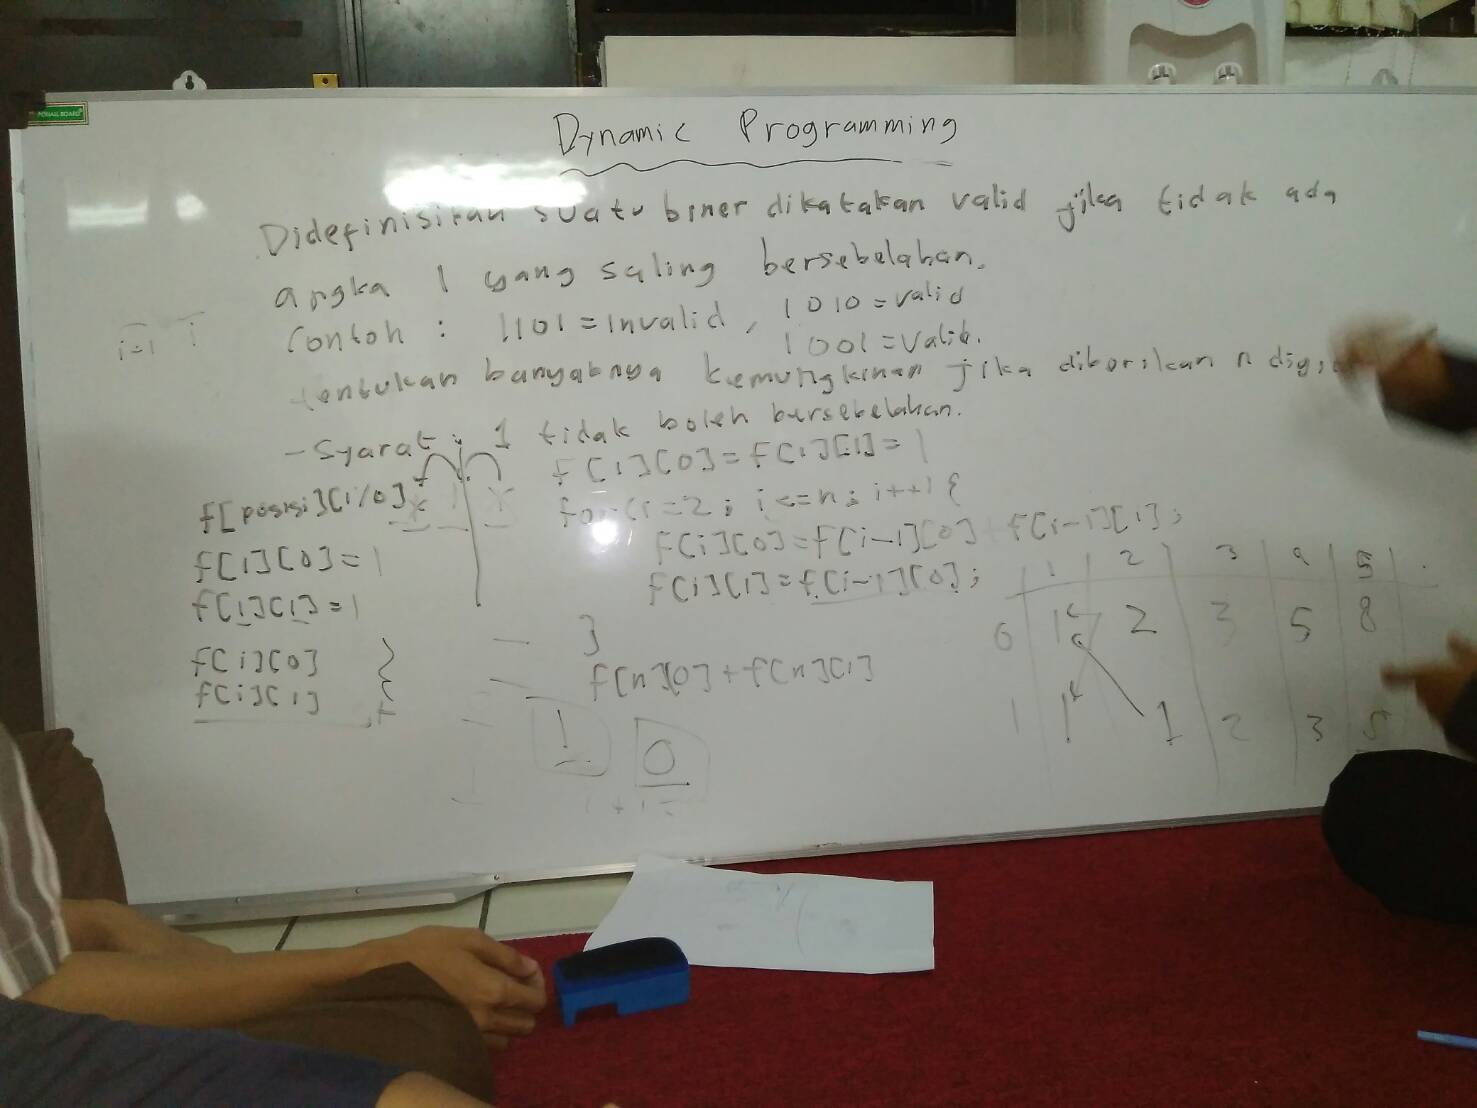 Dynamic Programming
Didefinisikan suatu biner dikatakan valid jika tidak ada
angka 1 yang saling bersebelahan.
Contoh : 1101 = invalid, 1010 = valid
1001 = valid.
i-1 i
tentukan banyaknya kemungkinan jika diberikan n digit
- Syarat : 1 tidak boleh bersebelahan.
f[posisi][1/0]
* 1 *
f[1][0] = 1
f[1][1] = 1
f[i][0]
f[i][1]
+
f[1][0] = f[1][1] = 1
for (i=2; i<=n; i++) {
f[i][0] = f[i-1][0] + f[i-1][1];
f[i][1] = f[i-1][0];
}
f[n][0] + f[n][1]
1 0
1 2 3 4 5
0 1 2 3 5 8
1 1 1 2 3 5